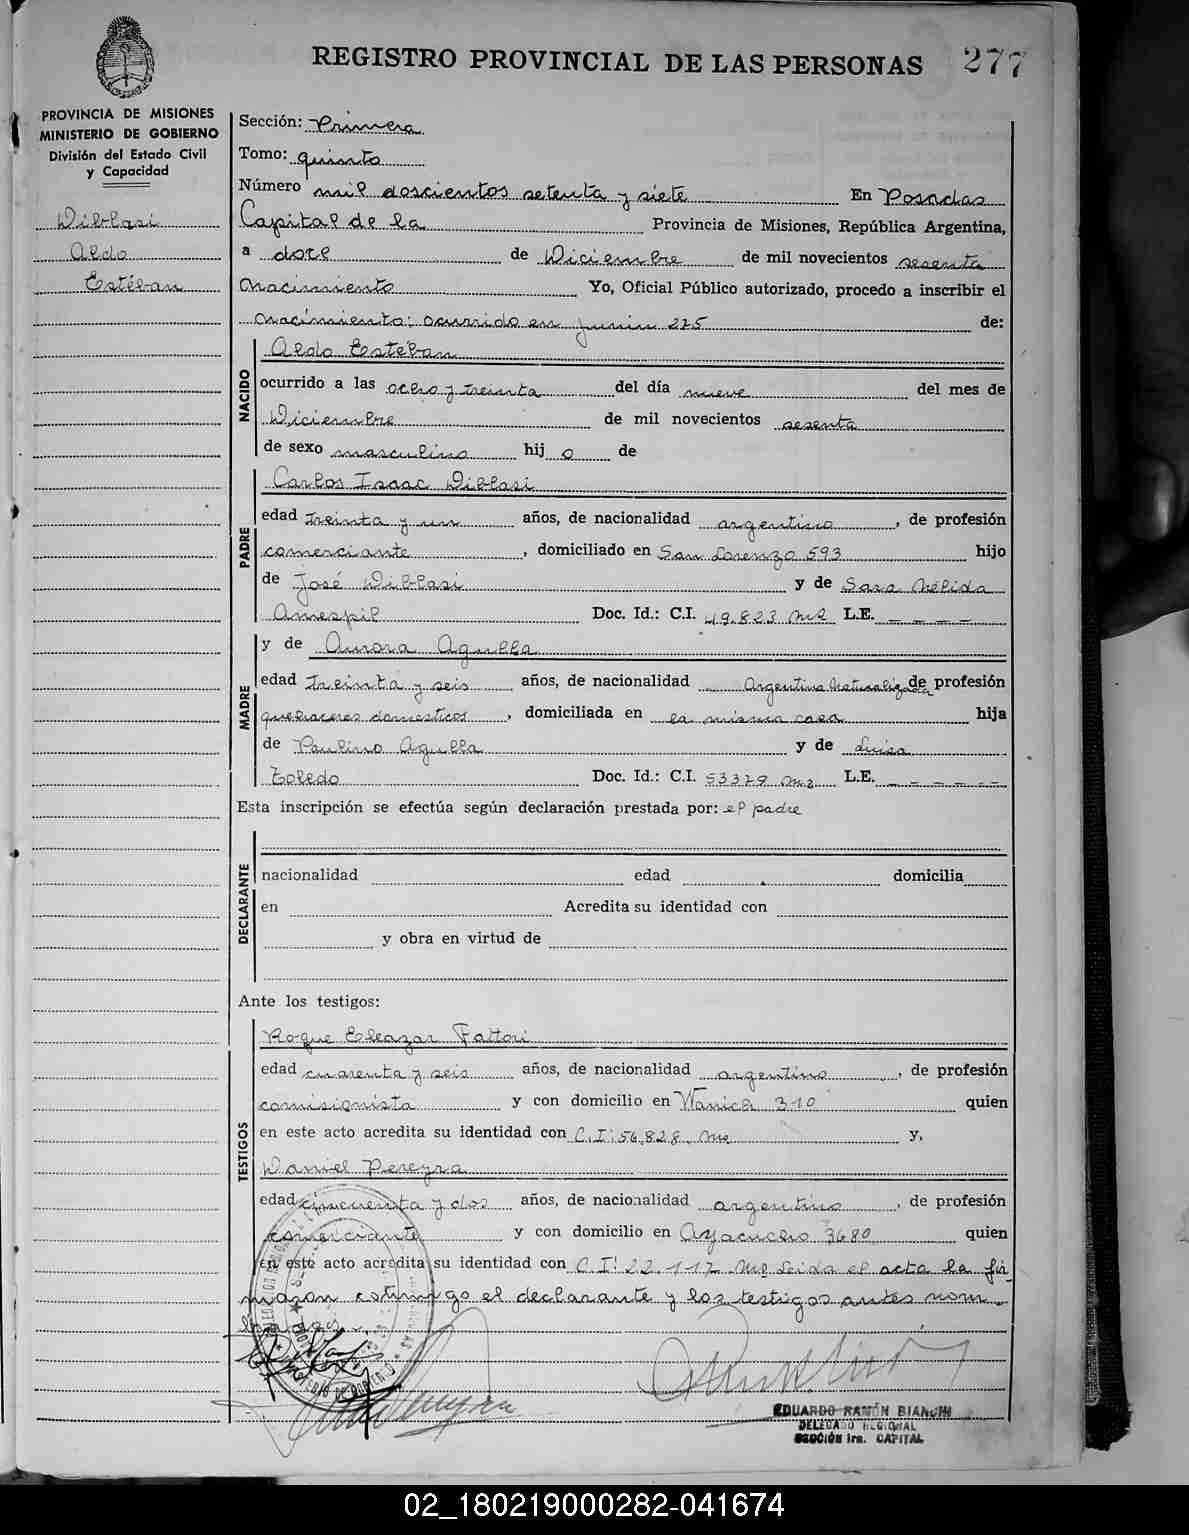 REGISTRO PROVINCIAL DE LAS PERSONAS 277
PROVINCIA DE MISIONES
MINISTERIO DE GOBIERNO
División del Estado Civil
y Capacidad
Diblasi
Aldo
Estéban
Sección: Primera
Tomo: quinto
Número mil doscientos setenta y siete En Posadas
Capital de la Provincia de Misiones, República Argentina,
a doce de Diciembre de mil novecientos sesenta
Nacimiento Yo, Oficial Público autorizado, procedo a inscribir el
nacimiento: ocurrido en Junin 275 de:
Aldo Estéban
NACIDO
ocurrido a las ocho y treinta del día nueve del mes de
Diciembre de mil novecientos sesenta
de sexo masculino hij o de
Carlos Isaac Diblasi
PADRE
edad treinta y un años, de nacionalidad argentino, de profesión
comerciante, domiciliado en San Lorenzo 593 hijo
de José Diblasi y de Sara Nélida
Amespil Doc. Id.: C.I. 49.823 Mns L.E. _ _ _ _
y de Aurora Agulla
MADRE
edad treinta y seis años, de nacionalidad Argentina Naturalizada de profesión
quehaceres domesticos, domiciliada en la misma casa hija
de Paulino Agulla y de Luisa
Toledo Doc. Id.: C.I. 53379 Mns L.E. _ _ _ _ _ _
Esta inscripción se efectúa según declaración prestada por: el padre
DECLARANTE
nacionalidad edad domicilia
en Acredita su identidad con
y obra en virtud de
Ante los testigos:
TESTIGOS
Roque Eleazar Fattori
edad cuarenta y seis años, de nacionalidad argentino, de profesión
comisionista y con domicilio en Wanich 310 quien
en este acto acredita su identidad con C.I: 56.828. Mns y,
Daniel Pereyra
edad cincuenta y dos años, de nacionalidad argentino, de profesión
comerciante y con domicilio en Ayacucho 3680 quien
en este acto acredita su identidad con C.I: 22.117 Mns Leida el acta la fir
maron conmigo el declarante y los testigos antes nom-
EDUARDO RAMÓN BIANCHI
DELEGADO REGIONAL
SECCIÓN 1ra. CAPITAL
02_180219000282-041674